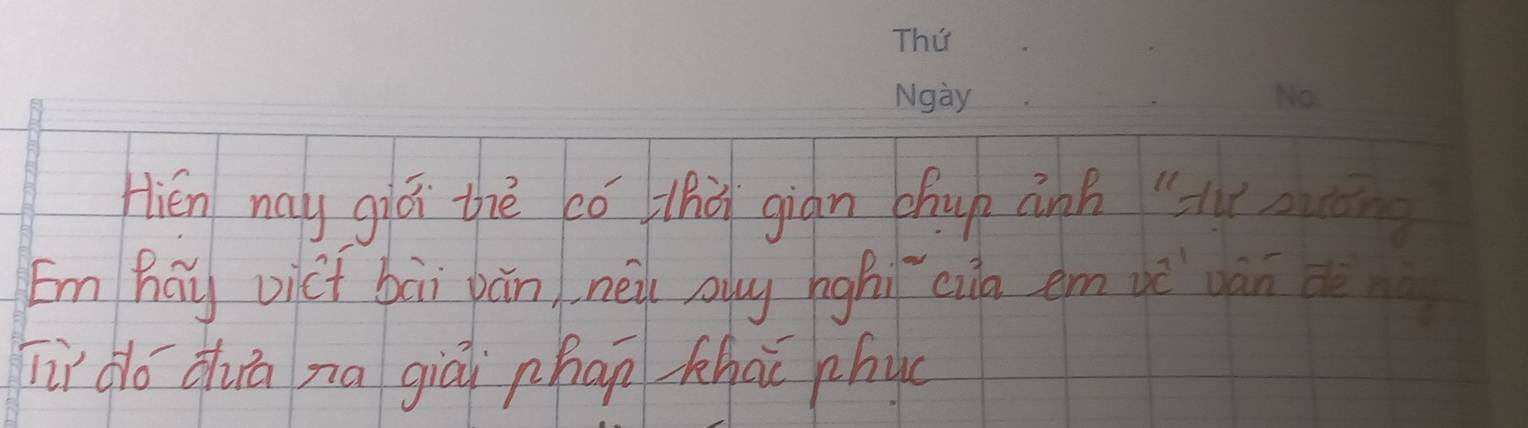 Thứ
Ngày
No.
Hiện nay giới trẻ có thời gian chụp ảnh "tự sướng"
Em hãy viết bài văn, nêu suy nghĩ của em về vấn đề này
Từ đó đưa ra giải pháp khắc phục